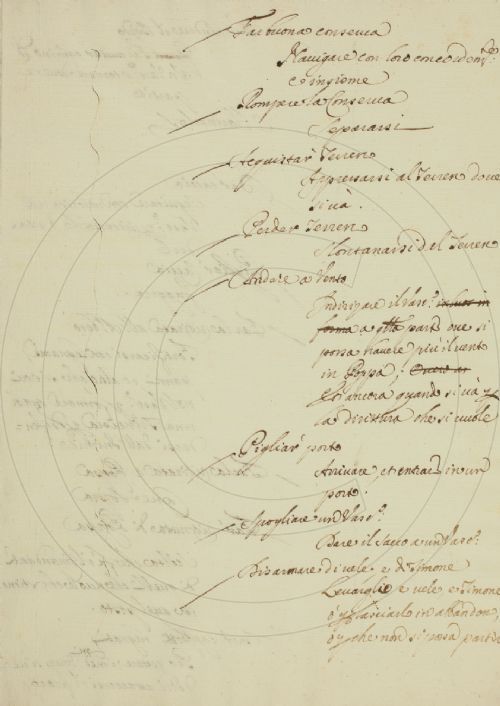 Far buona conserva
Navigare con loro concordem.te
et insieme
Rompere la Conserva
Separarsi
Acquistar Terren
Appressarsi al Terren dove
si và.
Perder Terren
Allontanarsi del Terren
Andare a Vento
Indirizzare il Vas.o
forma a parte ove si
possa havere più il vento
in Poppa;
Et ancora quando si và
la dirittura che si vuole
Pigliar porto
Arrivare, et entrar in un
porto.
Spogliare un Vas.o
Dare il sacco a un Vas.o
Disarmare di vele e di Timone
Levargli e vele e Timone
lasciarlo in abbandon,
che non si possa partir